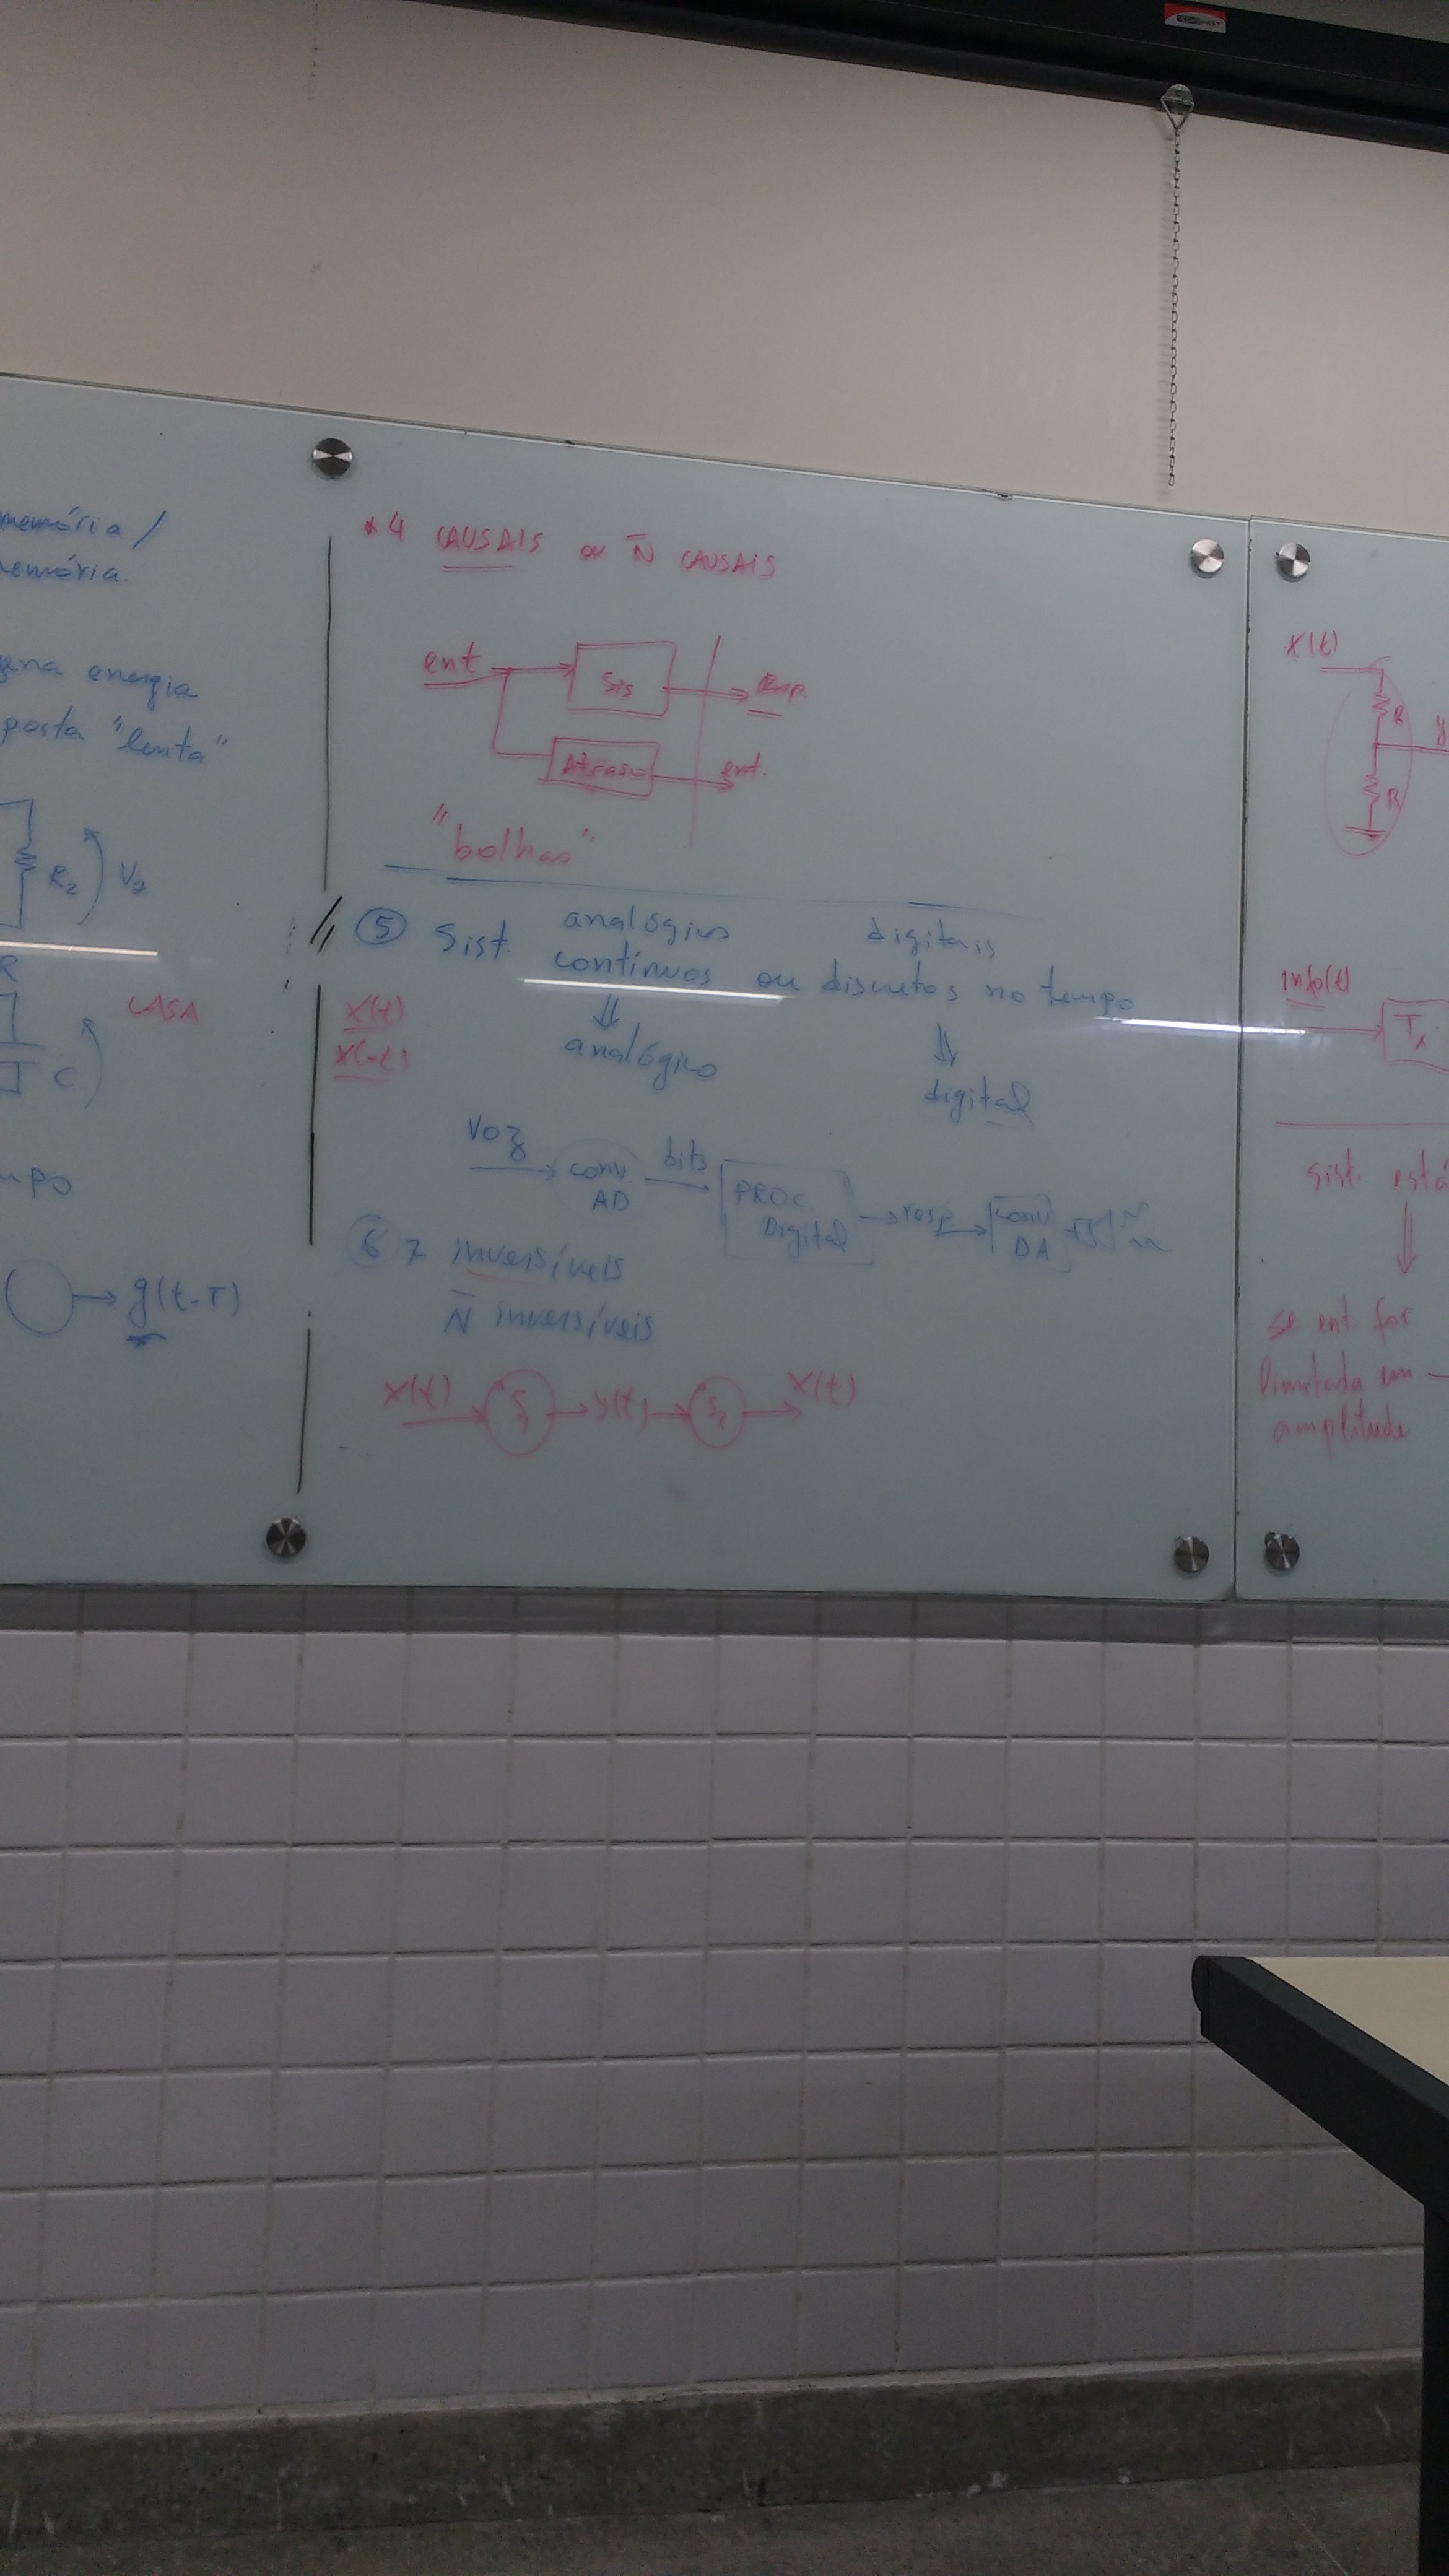 memória /
emória.
gena energia
posta "lenta"
R₂ V₂
R
CASA
C
mpo
g(t-τ)
*4 CAUSAIS ou N̄ CAUSAIS
ent
Sis
Resp.
Atraso
ent.
"bolhas"
5 Sist. analógicos digitais
contínuos ou discretos no tempo
x(t)
x(-t)
analógico
digital
voz
conv. AD
bits
PROC. Digital
resp
conv DA
6 7 inversíveis
N̄ inversíveis
x(t) S₁ y(t) S₂ x(t)
x(t)
R
y
R
info(t)
Tx
sist. está
se ent. for
limitada em
amplitude